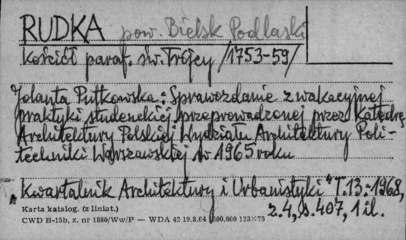 RUDKA pow. Bielsk Podlaski
Kościół paraf. św. Trójcy /1753-59/
Jolanta Putkowska: Sprawozdanie z wakacyjnej
praktyki studenckiej przeprowadzonej przez Katedrę
Architektury Polskiej Wydziału Architektury Poli-
techniki Warszawskiej w 1965 roku
"Kwartalnik Architektury i Urbanistyki" T.13:1968,
z.4, s.407, 1 il.
Karta katalog. (z liniat.)
CWD B-15b, z. nr 1880/Ww/P — WDA 42 19.8.64